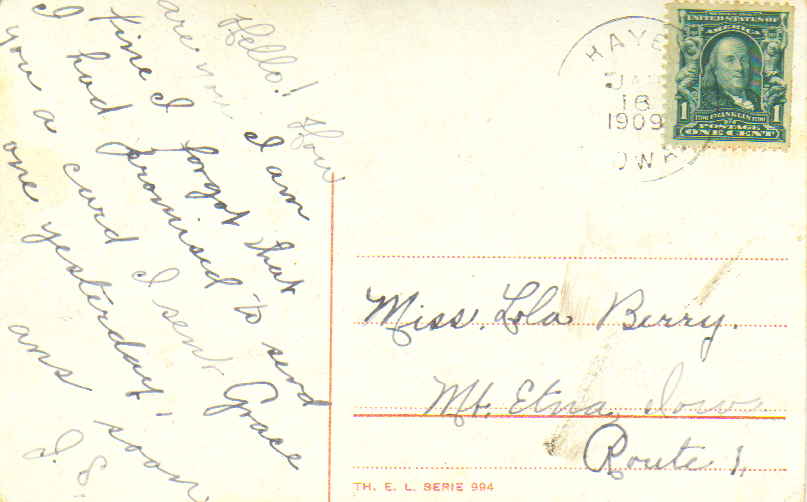 Hello! How
are you I am
fine I forgot that
I had promised to send
you a card I sent Grace
one yesterday!
ans soon
I. S.
HAYE
JAN
18
1909
OWA
UNITED STATES OF
AMERICA
1 FRANKLIN 1
POSTAGE
ONE CENT
Miss. Lola Berry.
Mt. Etna, Iowa
Route 1,
TH. E. L. SERIE 994